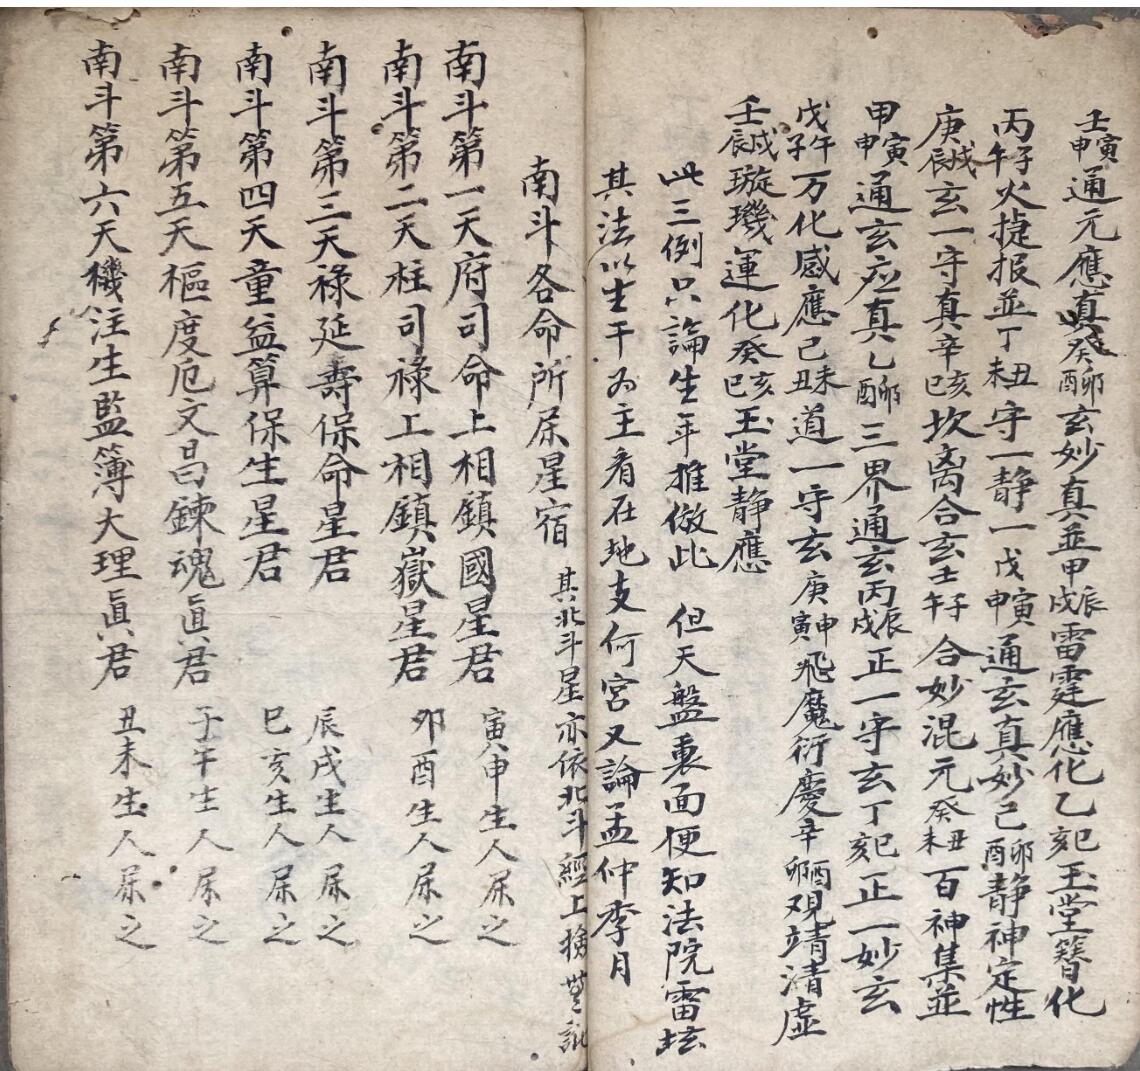 壬寅申通元應真癸卯酉玄妙真並甲辰戌雷霆應化乙巳亥玉堂簪化
丙子午火捷报並丁丑未守一静一戊寅申通玄真妙己卯酉静神定性
庚戌辰玄一守真辛亥巳坎离合玄壬子午合妙混元癸丑未百神集並
甲寅申通玄应真乙卯酉三界通玄丙辰戌正一守玄丁巳亥正一妙玄
戊午子万化感應己未丑道一守玄庚申寅飛魔衍慶辛酉卯观靖清虚
壬戌辰璇璣運化癸亥巳玉堂静應
此三例只論生年推倣此 但天盤裏面便知法院雷坛
其法以生干为主看在地支何宮又論孟仲季月
南斗各命所属星宿 其北斗星亦依北斗經上撿
南斗第一天府司命上相鎮國星君 寅申生人属之
南斗第二天柱司祿上相鎮嶽星君 卯酉生人属之
南斗第三天祿延壽保命星君 辰戌生人属之
南斗第四天童益算保生星君 巳亥生人属之
南斗第五天樞度厄文昌鍊魂眞君 子午生人属之
南斗第六天機注生監簿大理眞君 丑未生人属之